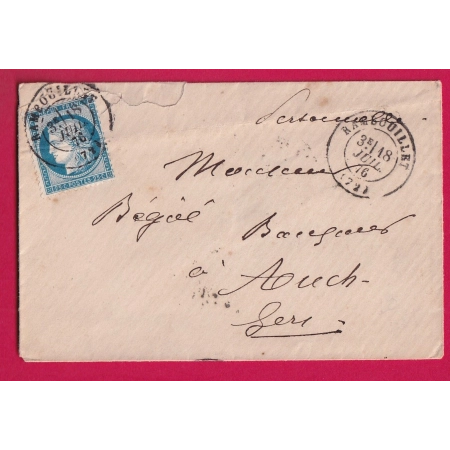 RAMBOUILLET
3E 18
JUIL.
76
(72)
Personnelle
RAMBOUILLET
3E 18
JUIL.
76
(72)
Monsieur
Bégué Banquier
à Auch
Gers